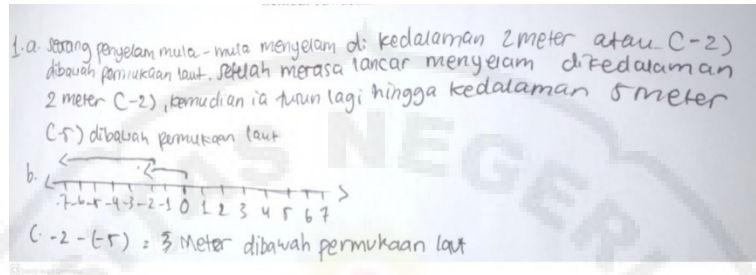 1.a. Seorang penyelam mula-mula menyelam di kedalaman 2 meter atau (-2)
dibawah permukaan laut. Setelah merasa lancar menyelam dikedalaman
2 meter (-2), kemudian ia turun lagi hingga kedalaman 5 meter
(-5) dibawah permukaan laut
b.
-7 -6 -5 -4 -3 -2 -1 0 1 2 3 4 5 6 7
C. -2 - (-5) = 3 Meter dibawah permukaan laut
NEGERI